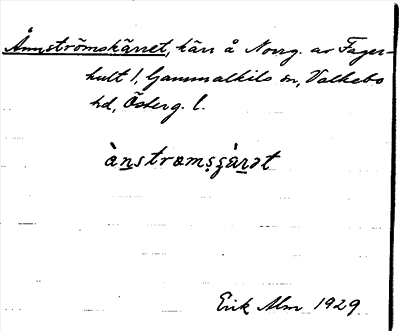 Ånnströmskärret, kärr å Norrg. av Fager-
hult 1, Gammalkils sn, Valkebo
hd, Österg. l.
ànstrœmsʂàrət
Erik Alm 1929